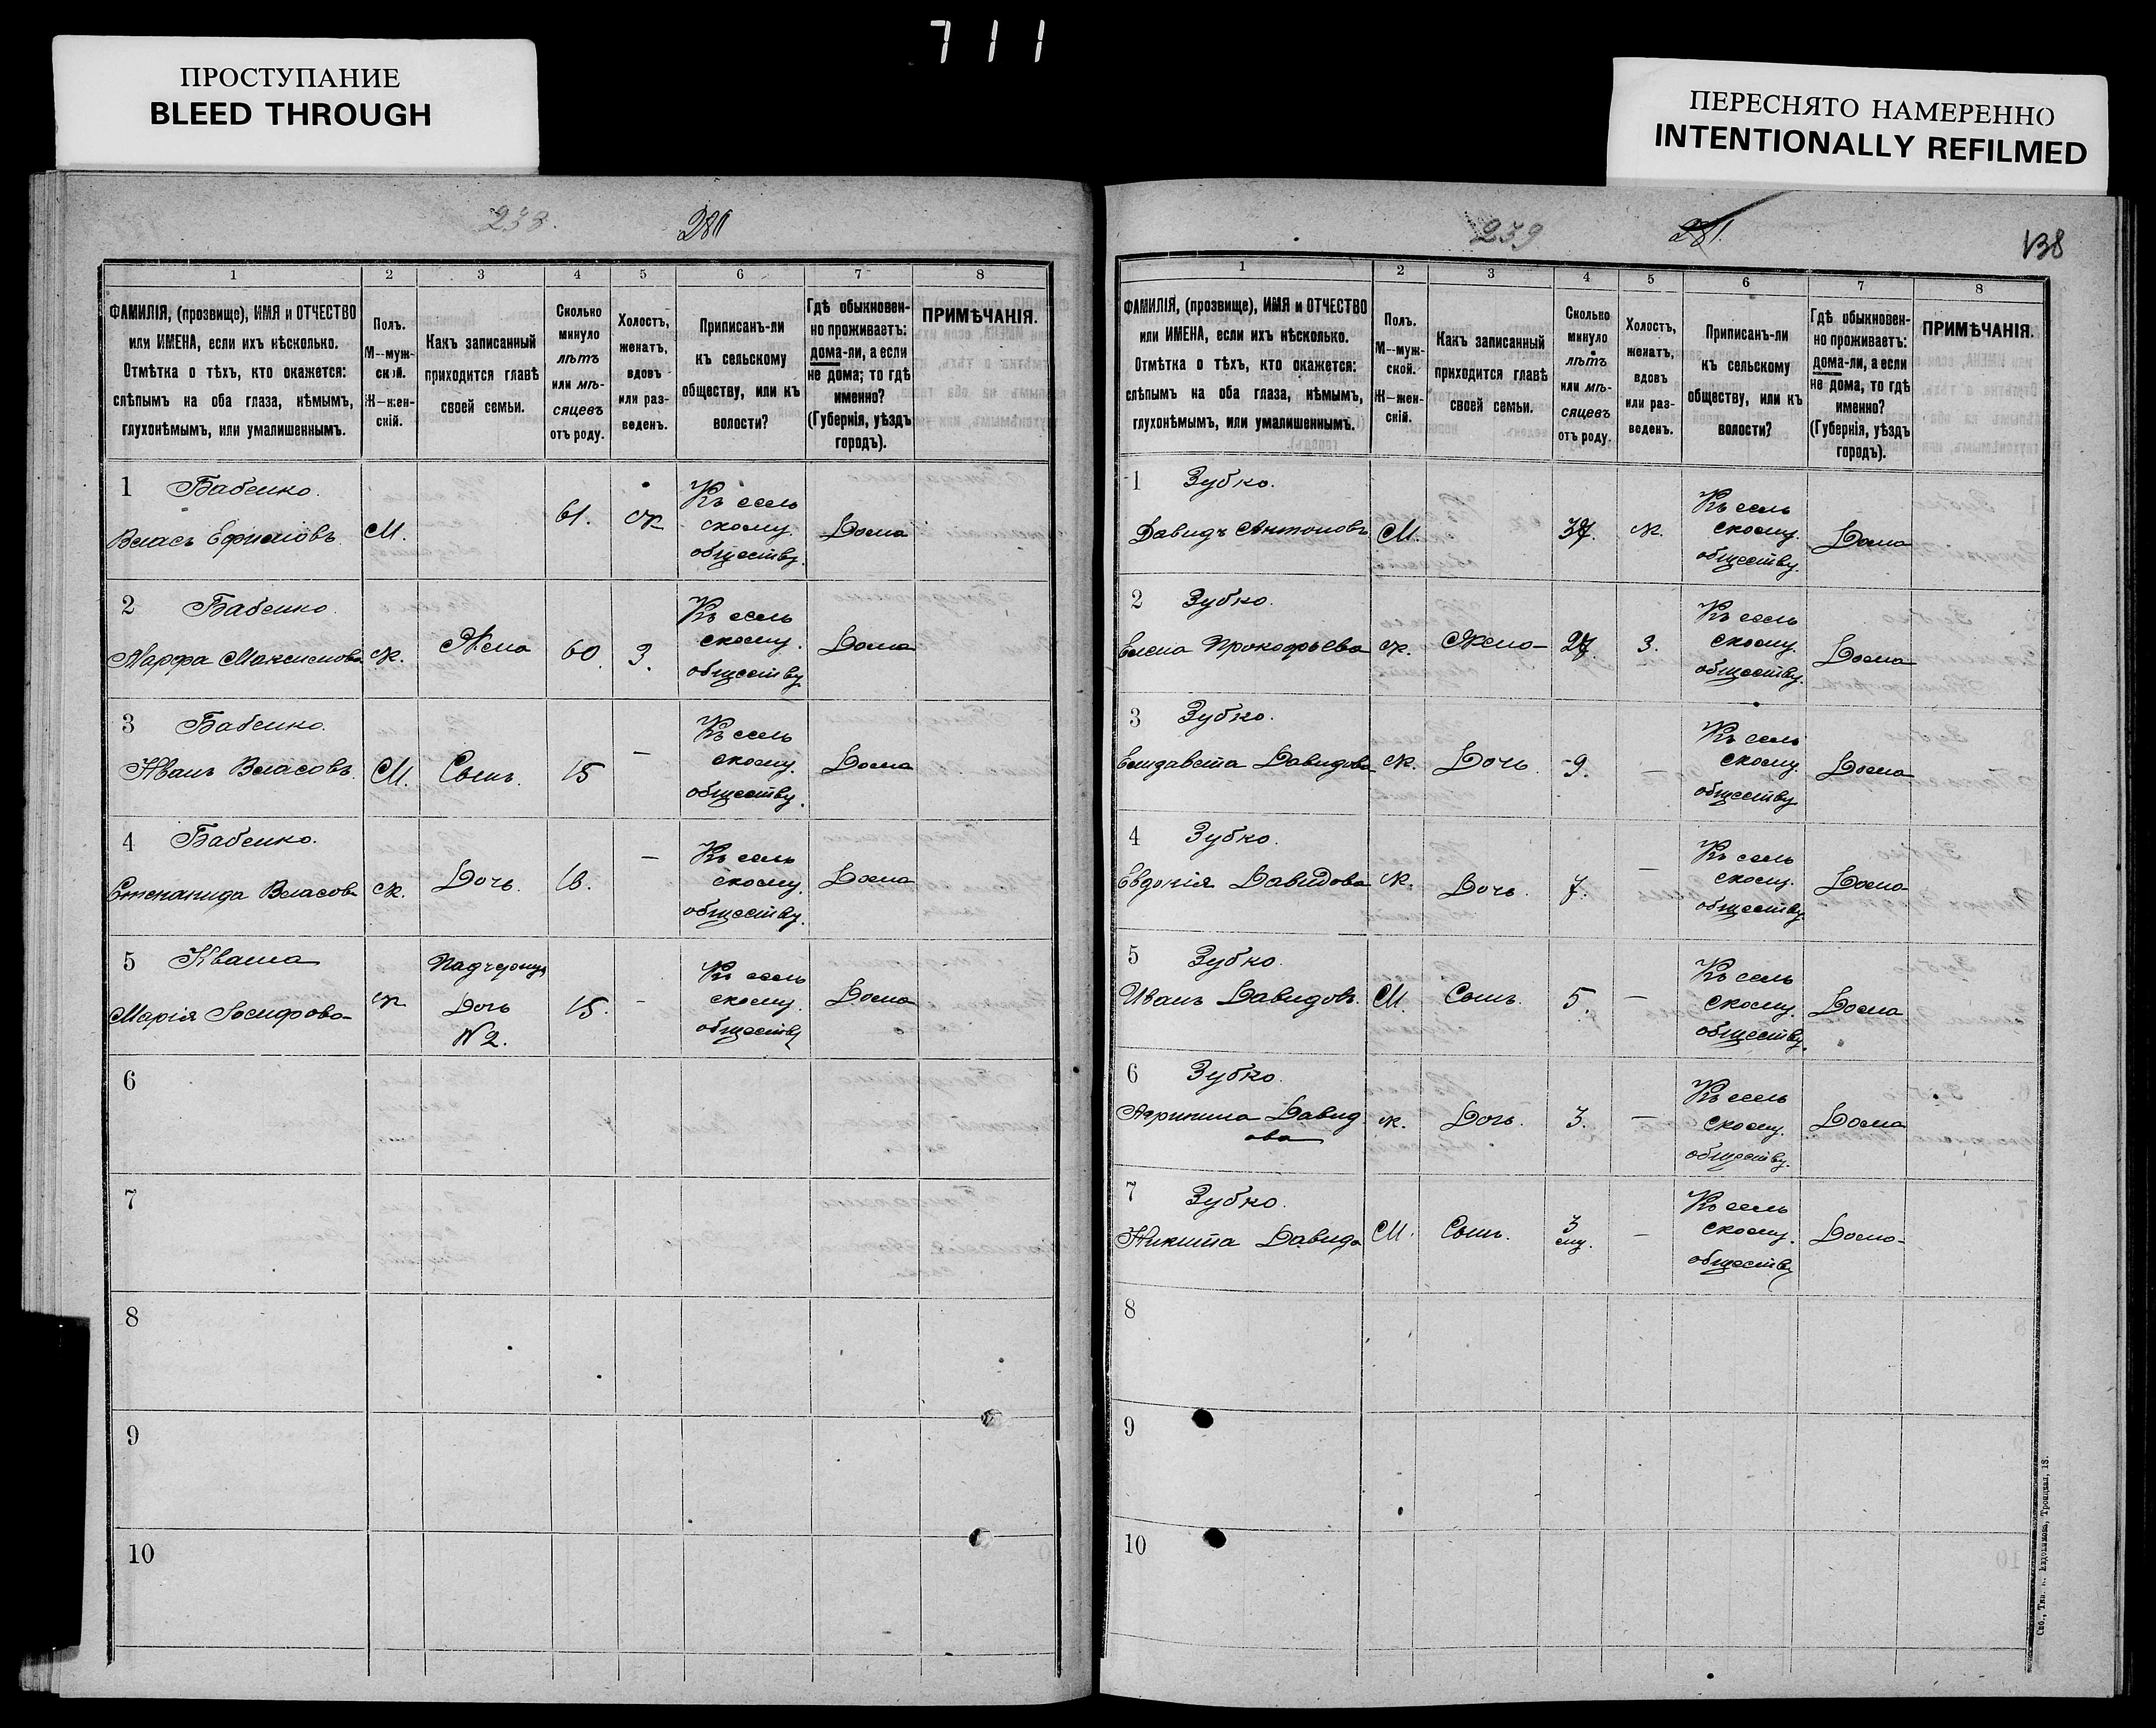 711
ПРОСТУПАНИЕ
BLEED THROUGH
ПЕРЕСНЯТО НАМЕРЕННО
INTENTIONALLY REFILMED
238.
1 2 3 4 5 6 7 8
ФАМИЛІЯ, (прозвище), ИМЯ и ОТЧЕСТВО
или ИМЕНА, если ихъ нѣсколько.
Отмѣтка о тѣхъ, кто окажется:
слѣпымъ на оба глаза, нѣмымъ,
глухонѣмымъ, или умалишеннымъ.
Полъ.
М--муж-
ской.
Ж--жен-
скій.
Какъ записанный
приходится главѣ
своей семьи.
Сколько
минуло
лѣтъ
или мѣ-
сяцевъ
отъ роду.
Холостъ,
женатъ,
вдовъ
или раз-
веденъ.
Приписанъ-ли
къ сельскому
обществу, или къ
волости?
Гдѣ обыкновен-
но проживаетъ:
дома-ли, а если
не дома; то гдѣ
именно?
(Губернія, уѣздъ
городъ).
ПРИМѢЧАНІЯ.
1 Бабенко.
Власъ Ефимовъ
М.
61.
ж
Къ сель
скому.
обществу.
Дома
2 Бабенко.
Марфа Максимова
ж.
Жена
60.
З.
Къ сель
скому.
обществу
Дома
3 Бабенко.
Иванъ Власовъ.
М.
Сынъ.
15
–
Къ сель
скому.
обществу.
Дома
4 Бабенко.
Степанида Власов
ж.
Дочь.
–
Къ сель
скому.
обществу.
Дома
5 Кваша
Марія Іосифова
ж
Дочь
№ 2.
15.
-
Къ сель
скому.
обществу
Дома
6
7
8
9
10
239
281.
138
1 2 3 4 5 6 7 8
ФАМИЛІЯ, (прозвище), ИМЯ и ОТЧЕСТВО
или ИМЕНА, если ихъ нѣсколько.
Отмѣтка о тѣхъ, кто окажется:
слѣпымъ на оба глаза, нѣмымъ,
глухонѣмымъ, или умалишеннымъ.
Полъ.
М--муж-
ской.
Ж--жен-
скій.
Какъ записанный
приходится главѣ
своей семьи.
Сколько
минуло
лѣтъ
или мѣ-
сяцевъ
отъ роду.
Холостъ,
женатъ,
вдовъ
или раз-
веденъ.
Приписанъ-ли
къ сельскому
обществу, или къ
волости?
Гдѣ обыкновен-
но проживаетъ:
дома-ли, а если
не дома, то гдѣ
именно?
(Губернія, уѣздъ
городъ).
ПРИМѢЧАНІЯ.
1 Зубко.
Давидъ Антоновъ
М.
37.
ж.
Къ сель
скому.
обществу.
Дома
2 Зубко.
Елена Прокофьева
ж.
Жена
27.
З.
Къ сель
скому.
обществу.
Дома
3 Зубко.
Елизавета Давидова
ж.
Дочь
9.
–
Къ сель
скому.
обществу
Дома
4 Зубко.
Евдокія Давидова
ж.
Дочь.
7.
–
Къ сель
скому.
обществу
Дома
5 Зубко.
Иванъ Давидовъ.
М.
Сынъ.
5.
–
Къ сель
скому.
обществу.
Дома
6 Зубко.
Агрипина Давид
ова
ж.
Дочь.
3.
–
Къ сель
скому.
обществу.
Дома
7 Зубко.
Никита Давидо
М.
Сынъ.
3
–
Къ сель
скому.
обществу
Дома
8
9
10